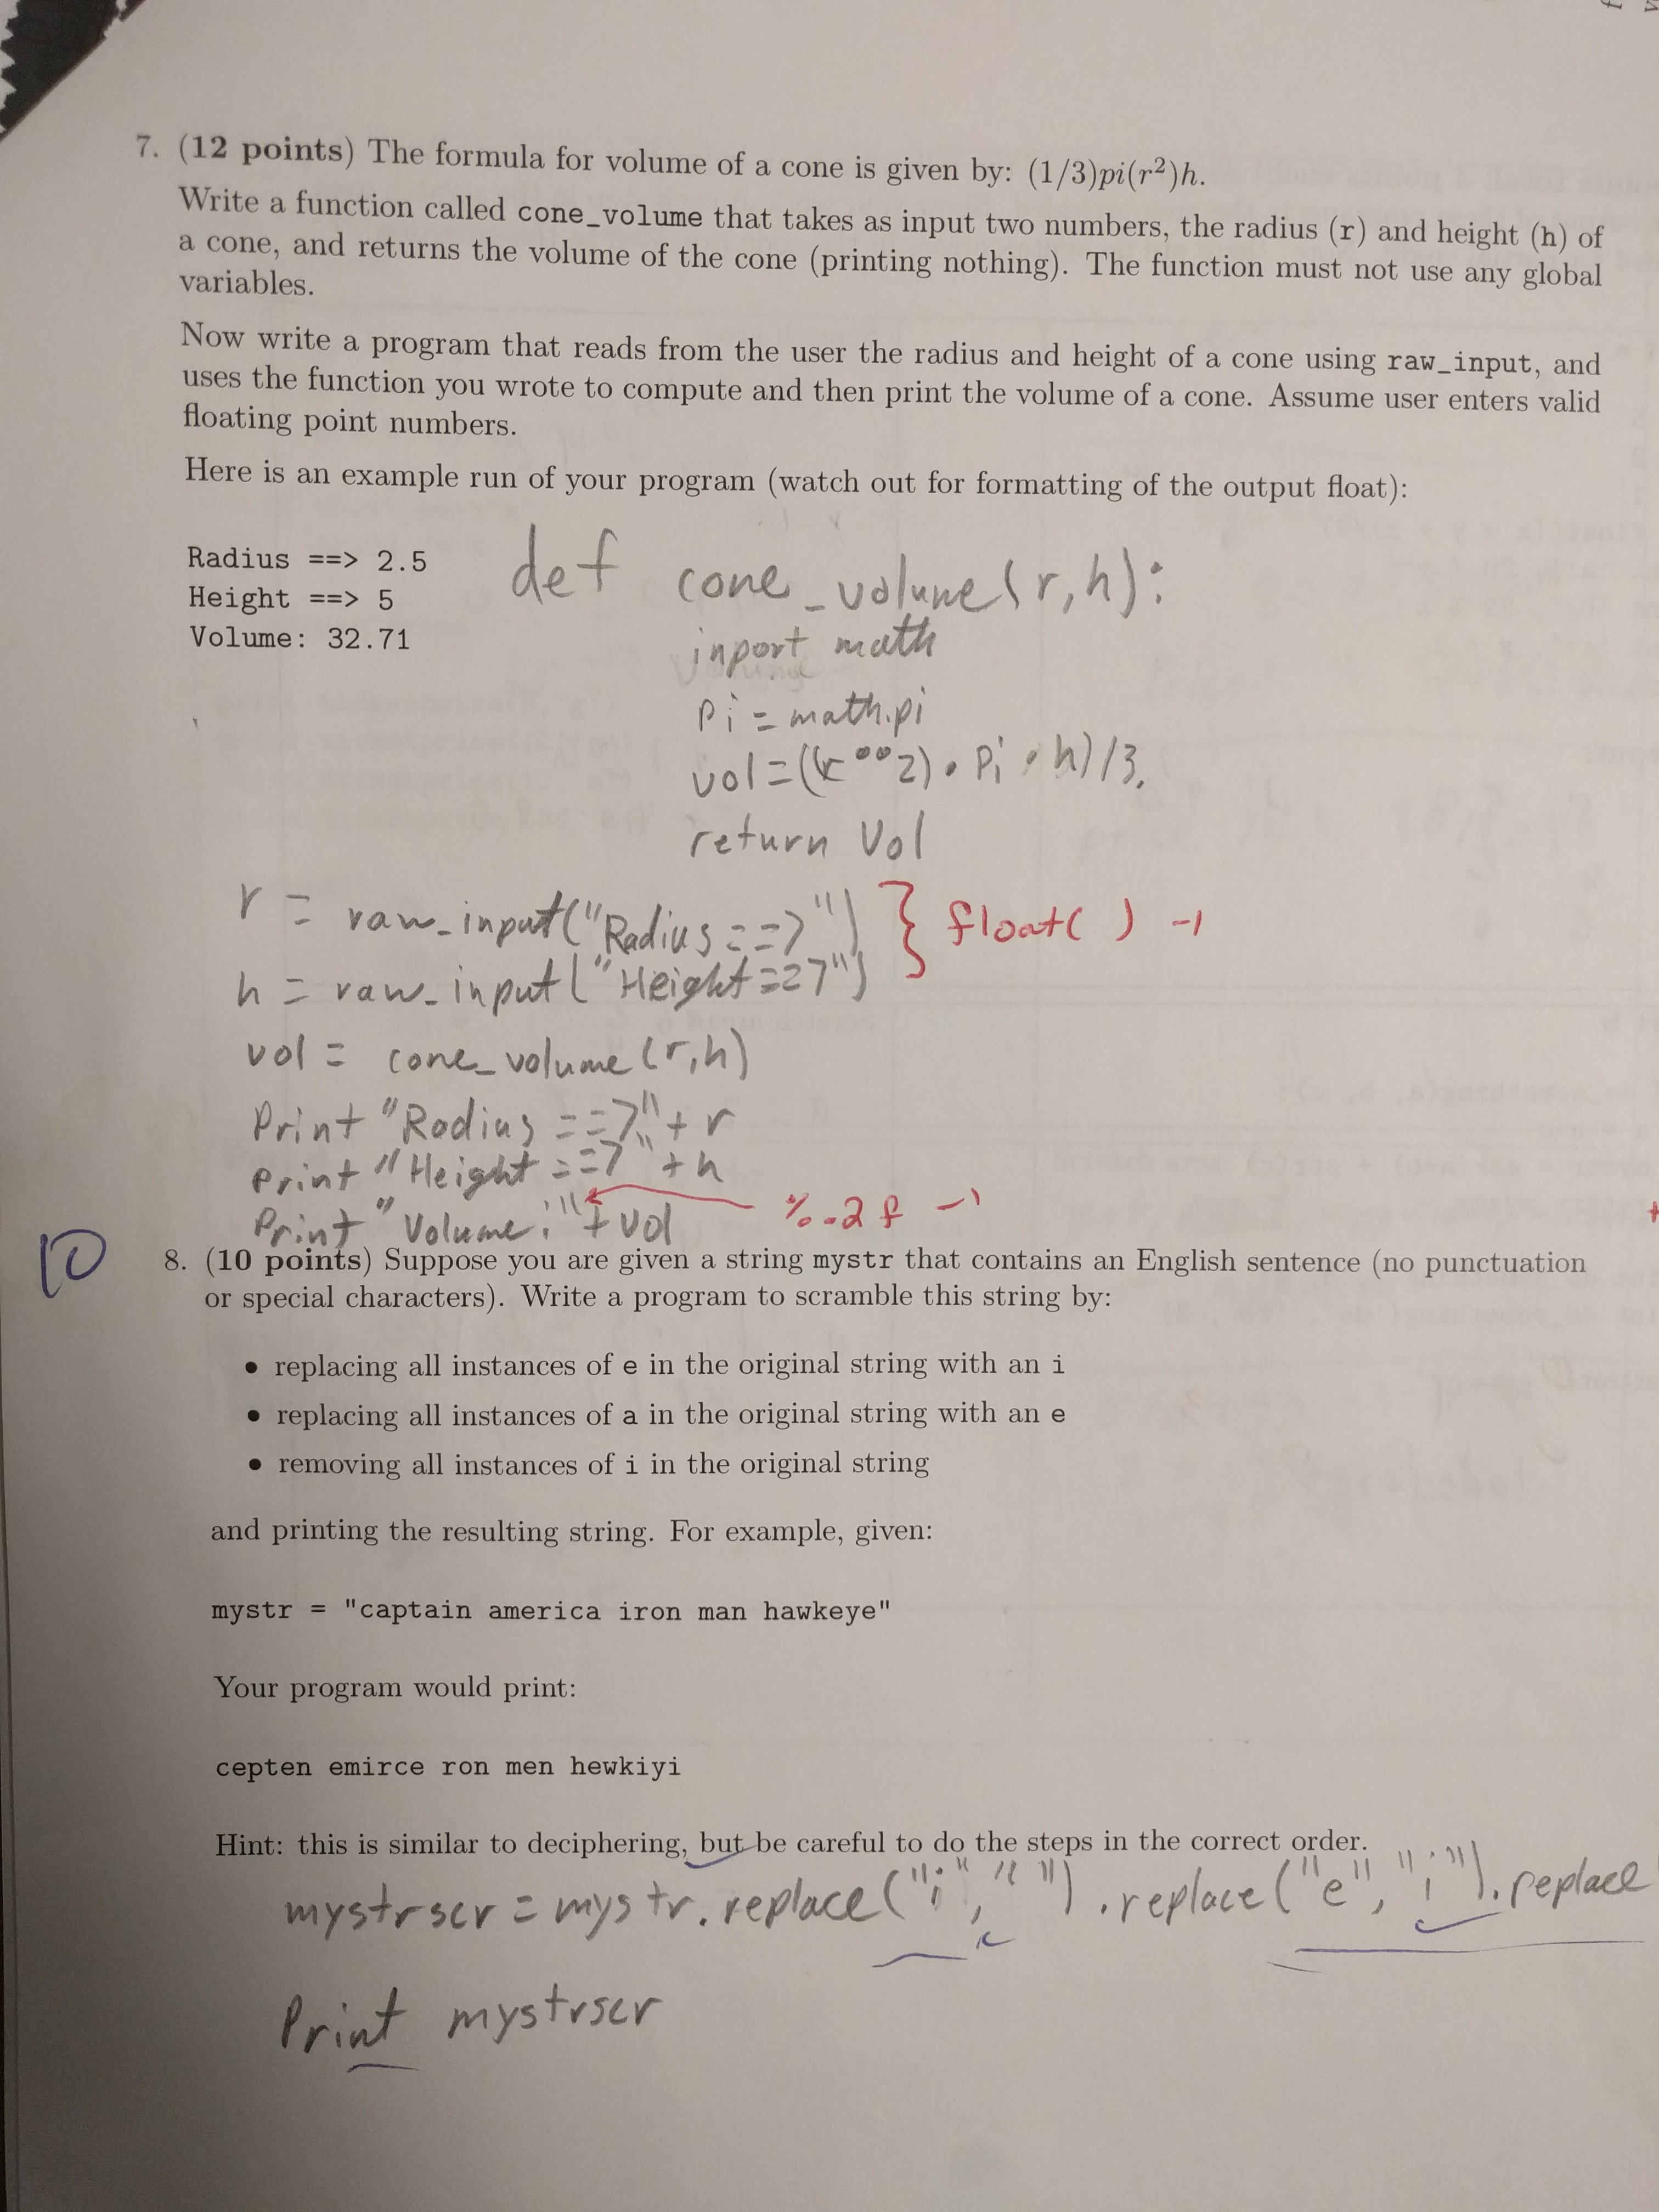 7. (12 points) The formula for volume of a cone is given by: (1/3)pi(r²)h.
Write a function called cone_volume that takes as input two numbers, the radius (r) and height (h) of
a cone, and returns the volume of the cone (printing nothing). The function must not use any global
variables.
Now write a program that reads from the user the radius and height of a cone using raw_input, and
uses the function you wrote to compute and then print the volume of a cone. Assume user enters valid
floating point numbers.
Here is an example run of your program (watch out for formatting of the output float):
Radius ==> 2.5
Height ==> 5
Volume: 32.71
def cone_volume(r,h):
inport math
pi = math.pi
vol = ((r**2) * Pi * h)/3.
return Vol
r = raw_input("Radius ==>") } float( ) -1
h = raw_input("Height ==>")
vol = cone_volume(r,h)
Print "Radius ==>" + r
Print "Height ==>" + h
Print "Volume:" + vol %.2f -1
10
8. (10 points) Suppose you are given a string mystr that contains an English sentence (no punctuation
or special characters). Write a program to scramble this string by:
• replacing all instances of e in the original string with an i
• replacing all instances of a in the original string with an e
• removing all instances of i in the original string
and printing the resulting string. For example, given:
mystr = "captain america iron man hawkeye"
Your program would print:
cepten emirce ron men hewkiyi
Hint: this is similar to deciphering, but be careful to do the steps in the correct order.
mystrscr = mystr.replace("i", "").replace("e", "i").replace
Print mystrscr